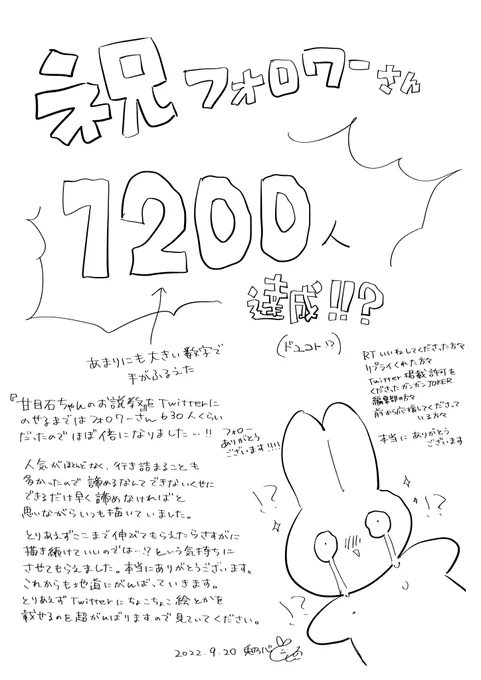 祝フォロワーさん
1200人
達成!!?
(ドユコト!?)
あまりにも大きい数字で
手がふるえた
『甘目石ちゃんのお説教』をTwitterに
のせるまではフォロワーさん630人くらい
だったのでほぼ倍になりました…!!
人気がほとんどなく、行き詰まることも
多かったので諦めるなんてできないくせに
できるだけ早く諦めなければと
思いながらいつも描いていました。
とりあえずここまで伸びてもらえたらさすがに
描き続けていいのでは…!?という気持ちに
させてもらえました。本当にありがとうございます。
これからも地道にがんばっていきます。
とりあえずTwitterにちょこちょこ絵とかを
載せるのを超がんばりますので見ていてください。
2022.9.20
フォロー
ありがとう
ございます!!!!
RTいいねしてくださった方々
リプライくれた方々
Twitter掲載許可を
くださったガンガンJOKER
編集部の方々
前から応援してくださって
いる方々
本当にありがとう
ございます
!?
!?
!?